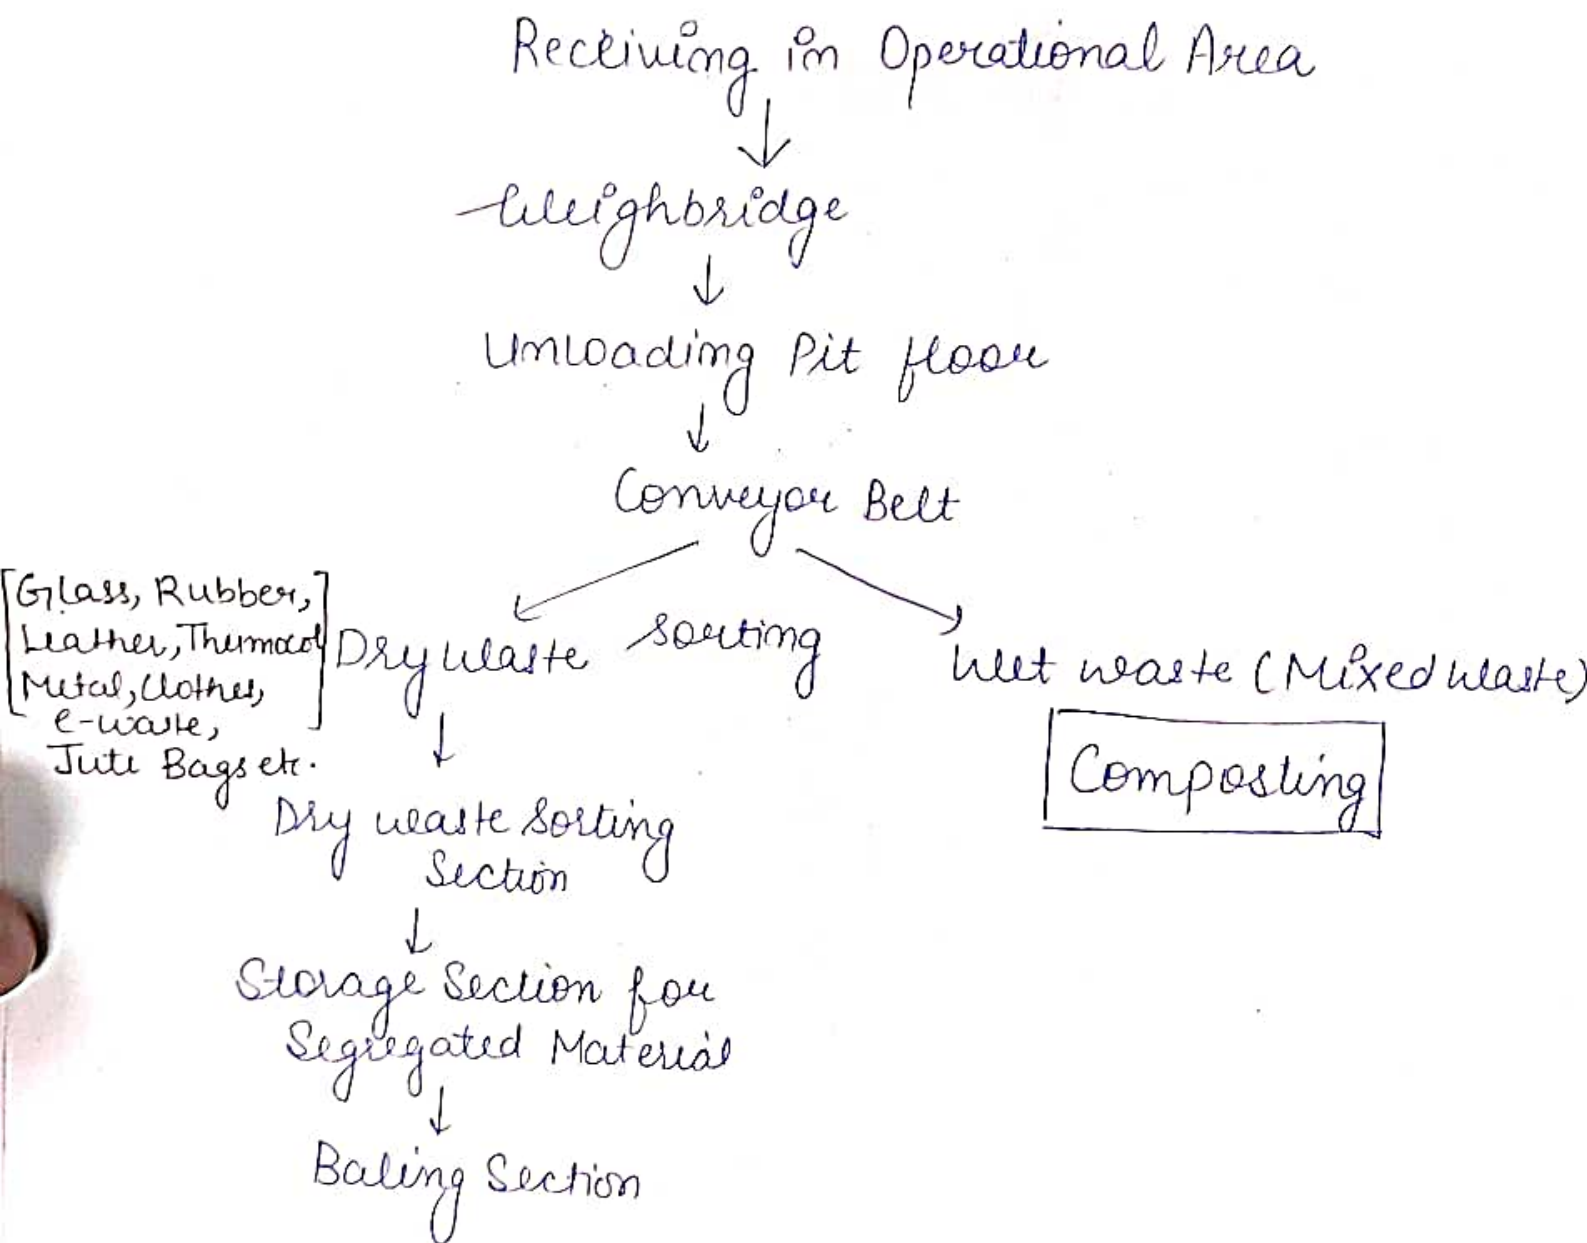 Receiving in Operational Area
Weighbridge
Unloading Pit floor
Conveyor Belt
[Glass, Rubber,]
Leather, Thermocol
Metal, Clothes,
e-waste,
Jute Bags etc.
Dry waste
sorting
Wet waste (Mixed waste)
Composting
Dry waste Sorting
Section
Storage Section for
Segregated Material
Baling Section